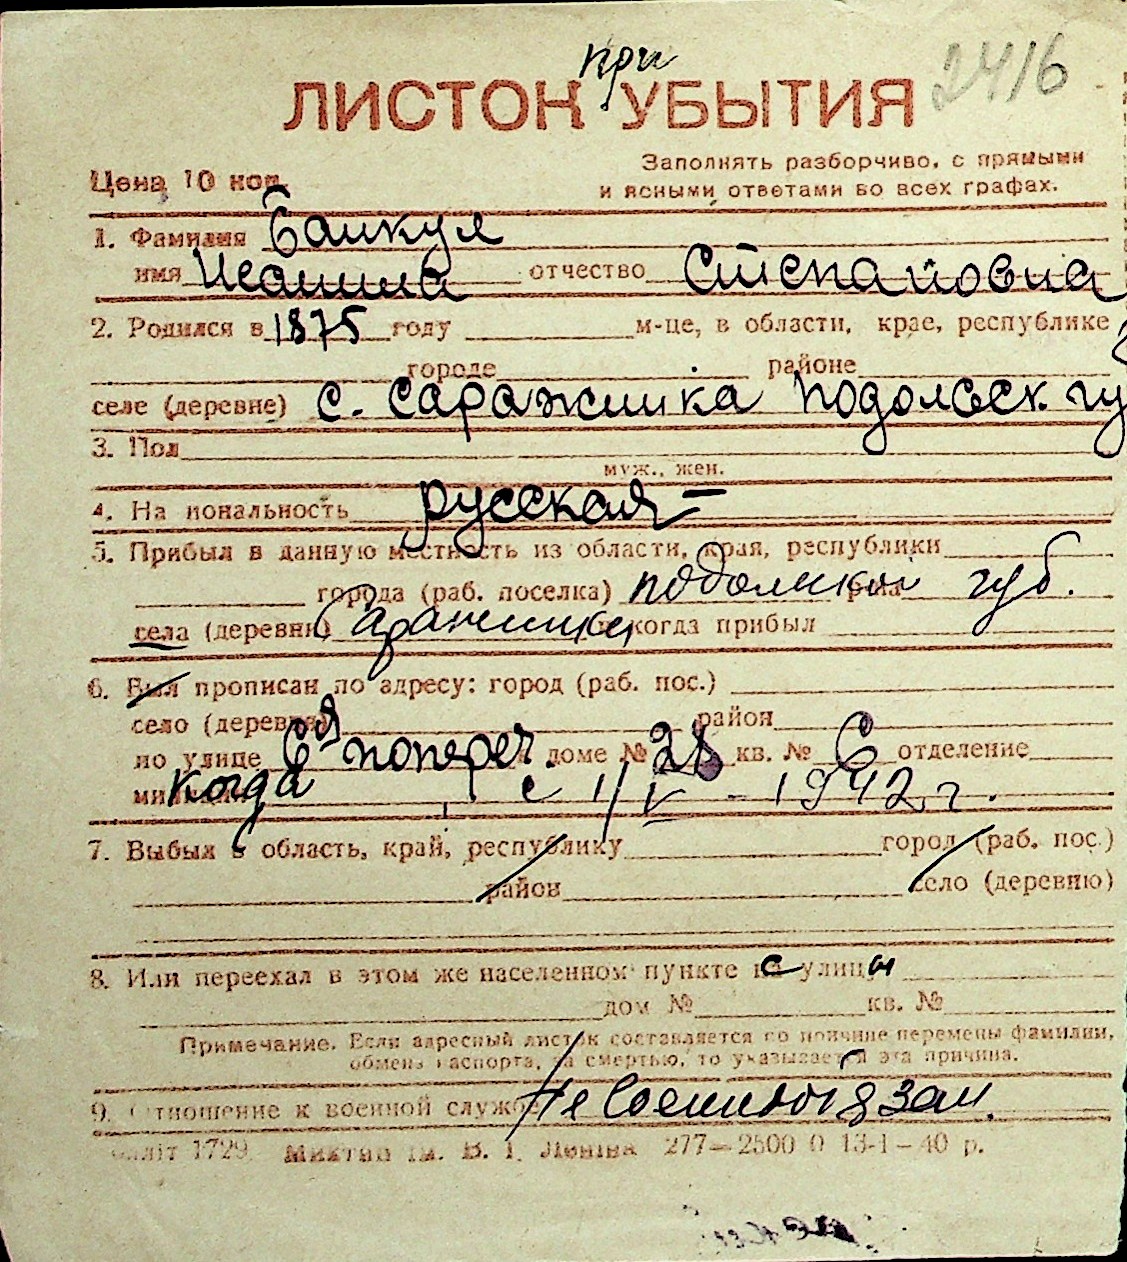 при
ЛИСТОК УБЫТИЯ 2416
Заполнять разборчиво, с прямыми
Цена 10 коп. и ясными ответами во всех графах.
1. Фамилия Банкул
имя отчество Степановна
2. Родился в 1875 году м-це, в области, крае, республике
городе районе
селе (деревне) с. Саражинка Подольск. гу
3. Пол
муж., жен.
4. На иональность русская –
5. Прибыл в данную местность из области, края, республики
города (раб. поселка) Подольской р-на губ.
села (деревни) Саражинки когда прибыл
6. Был прописан по адресу: город (раб. пос.)
село (деревня) район
по улице 6ая попереч. доме № 28 кв. № 6 отделение
милиции когда с 1/V – 1942 г.
7. Выбыл в область, край, республику город (раб. пос.)
район село (деревню)
8. Или переехал в этом же населенном пункте на с улицы
дом № кв. №
Примечание. Если адресный листок составляется по причине перемены фамилии,
обмена паспорта, за смертью, то указывается эта причина.
9. Отношение к военной службе Не военнообязан.
1729. им. В. І. Леніна 277—2500 0 13-1-40 р.